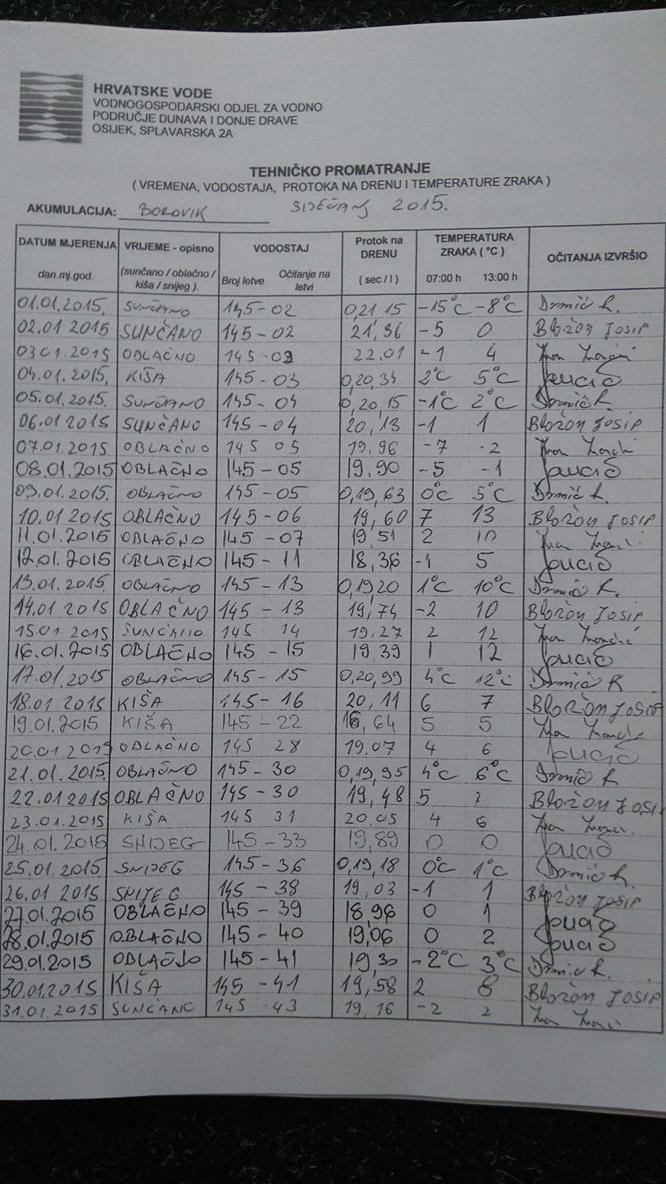 HRVATSKE VODE
VODNOGOSPODARSKI ODJEL ZA VODNO
PODRUČJE DUNAVA I DONJE DRAVE
OSIJEK, SPLAVARSKA 2A
TEHNIČKO PROMATRANJE
( VREMENA, VODOSTAJA, PROTOKA NA DRENU I TEMPERATURE ZRAKA )
AKUMULACIJA: BOROVIK SIJEČANJ 2015.
DATUM MJERENJA VRIJEME - opisno VODOSTAJ Protok na DRENU TEMPERATURA ZRAKA ( °C ) OČITANJA IZVRŠIO
dan.mj.god. (sunčano / oblačno / kiša / snijeg ). Broj letve Očitanje na letvi ( sec / l ) 07:00 h 13:00 h
01.01.2015. SUNČANO 145-02 0,21 15 -15°C -8°C Drmić R.
02.01 2015 SUNČANO 145-02 21,36 -5 0 Bložon JOSIP
03 01.2015 OBLAČNO 145-03 22.01 -1 4
04.01.2015. KIŠA 145-03 0,20,34 2°C 5°C
05.01.2015. SUNČANO 145-04 0,20,15 -1°C 2°C Drmić R.
06.01 2015 SUNČANO 145-04 20,13 -1 1 Bložon JOSIP
07.01.2015 OBLAČNO 145 05 19,96 -7 -2
08.01.2015 OBLAČNO 145-05 19,90 -5 -1
09.01.2015. OBLAČNO 145-05 0,19,63 0°C 5°C Drmić R.
10.01 2015 OBLAČNO 145-06 19,60 7 13 Bložon JOSIP
11.01.2015 OBLAČNO 145-07 19,51 2 10
12.01.2015 OBLAČNO 145-11 18,36 -1 5
13.01.2015. OBLAČNO 145-13 0,19 20 1°C 10°C Drmić R.
14.01 2015 OBLAČNO 145-13 19,74 -2 10 Bložon JOSIP
15 01 2015 SUNČANO 145 14 19,27 2 12
16.01.2015 OBLAČNO 145-15 19 39 1 12
17.01.2015 OBLAČNO 145-15 0,20,99 4°C 12°C Drmić R
18.01 2015 KIŠA 145-16 20,11 6 7 Bložon JOSIP
19.01.2015 KIŠA 145-22 16,64 5 5
20 01 2015 OBLAČNO 145 28 19,07 4 6
21.01.2015. OBLAČNO 145-30 0,19,95 4°C 6°C Drmić R
22.01 2015 OBLAČNO 145-30 19,48 5 Bložon JOSIP
23.01.2015 KIŠA 145 31 20,05 4 6
24.01.2015 SNIJEG 145-33 19,89 0 0
25.01.2015. SNIJEG 145-36 0,19,18 0°C 1°C Drmić R.
26.01 2015 SNIJEG 145-38 19,03 -1 1 Bložon JOSIP
27.01.2015 OBLAČNO 145-39 18,96 0 1
28.01.2015 OBLAČNO 145-40 19,06 0 2
29.01.2015 OBLAČNO 145-41 19,30 -2°C 3°C Drmić R.
30.01.2015 KIŠA 145-41 19,58 2 8 Bložon JOSIP
31.01.2015 SUNČANO 145-43 19,16 -2 2